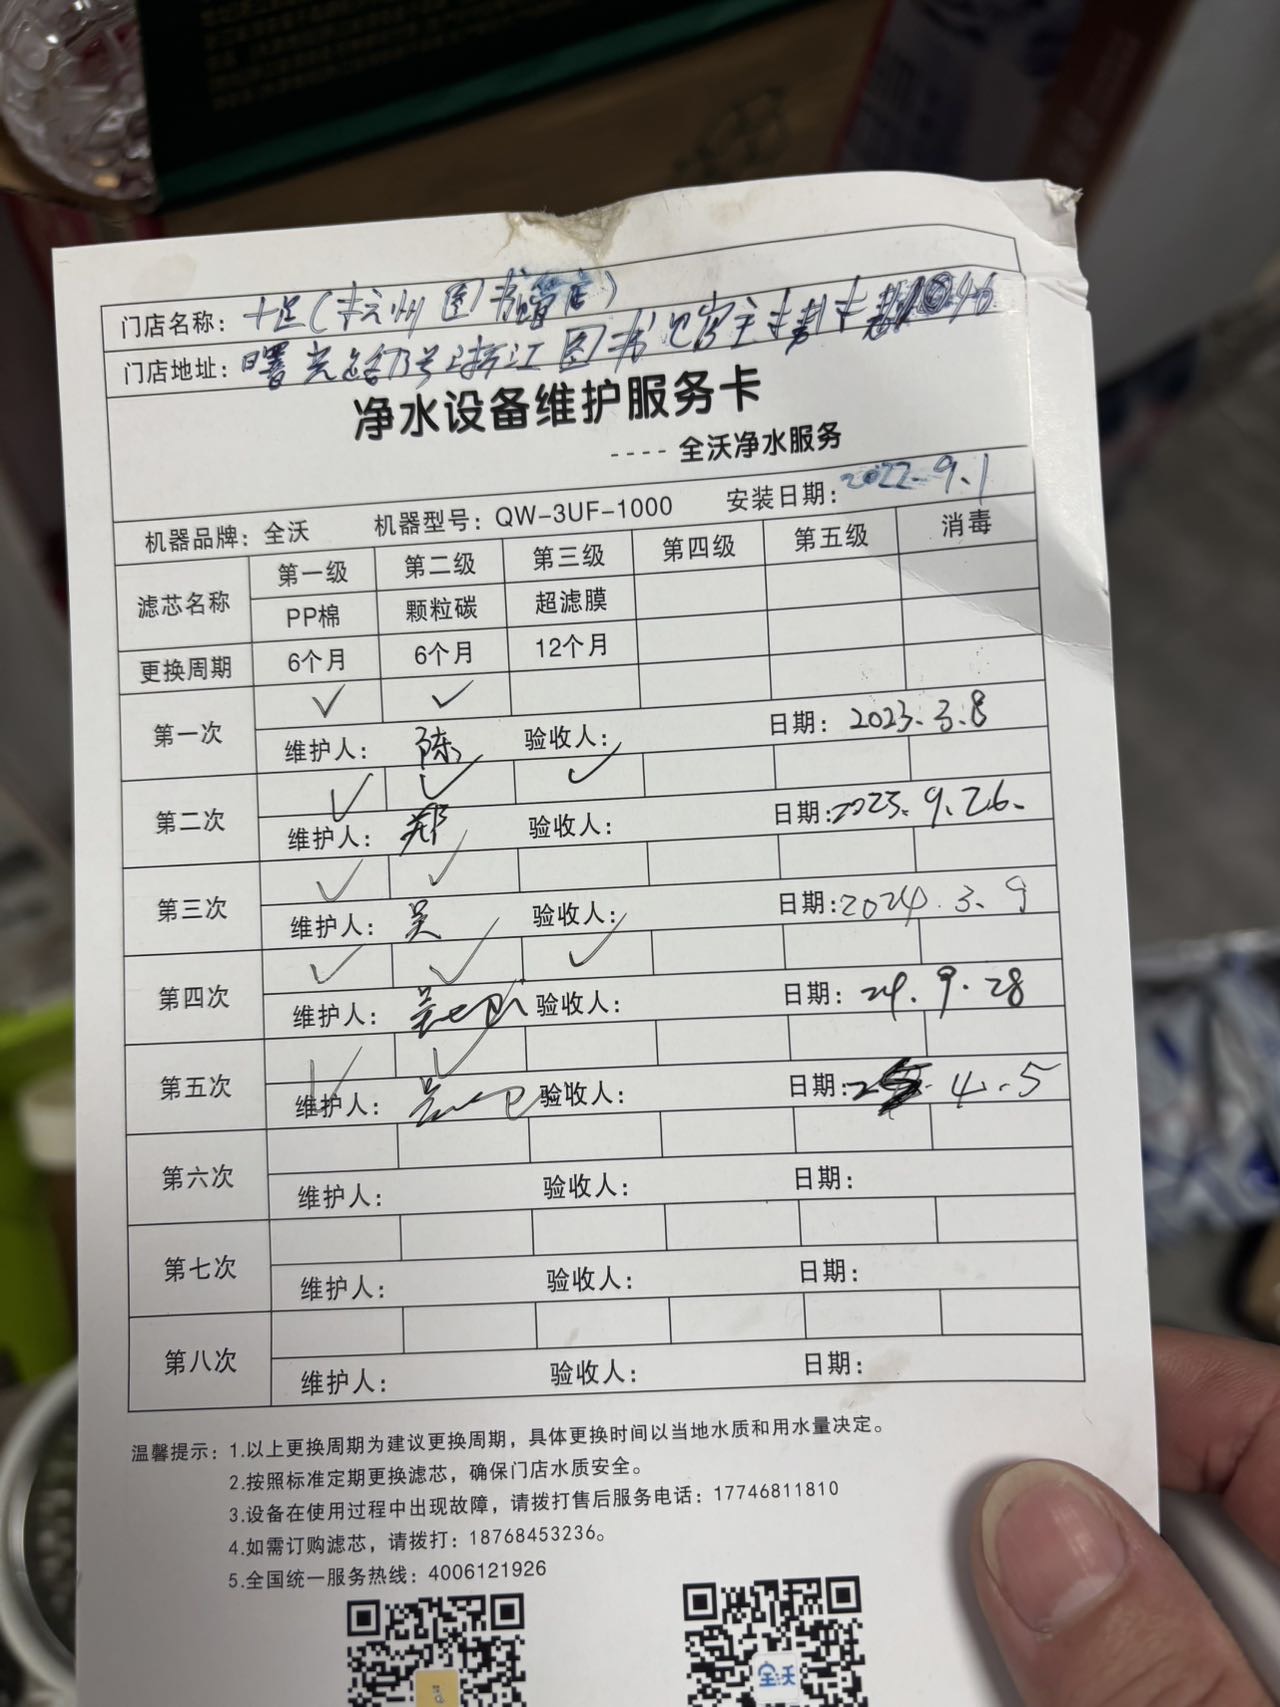 门店名称：十足（杭州图书馆店）
门店地址：曙光路73号浙江图书
净水设备维护服务卡
---- 全沃净水服务
机器品牌：全沃 机器型号：QW-3UF-1000 安装日期：2022.9.1
滤芯名称 第一级 第二级 第三级 第四级 第五级 消毒
PP棉 颗粒碳 超滤膜
更换周期 6个月 6个月 12个月
第一次 ✓ ✓
维护人：陈 验收人： 日期：2023.3.8
第二次 ✓ ✓ ✓
维护人：郑 验收人： 日期：2023.9.26.
第三次 ✓ ✓
维护人：吴 验收人： 日期：2024.3.9
第四次 ✓ ✓ ✓
维护人：吴 验收人： 日期：24.9.28
第五次 ✓ ✓
维护人：吴 验收人： 日期：25.4.5
第六次
维护人： 验收人： 日期：
第七次
维护人： 验收人： 日期：
第八次
维护人： 验收人： 日期：
温馨提示：1.以上更换周期为建议更换周期，具体更换时间以当地水质和用水量决定。
2.按照标准定期更换滤芯，确保门店水质安全。
3.设备在使用过程中出现故障，请拨打售后服务电话：17746811810
4.如需订购滤芯，请拨打：18768453236。
5.全国统一服务热线：4006121926
全沃